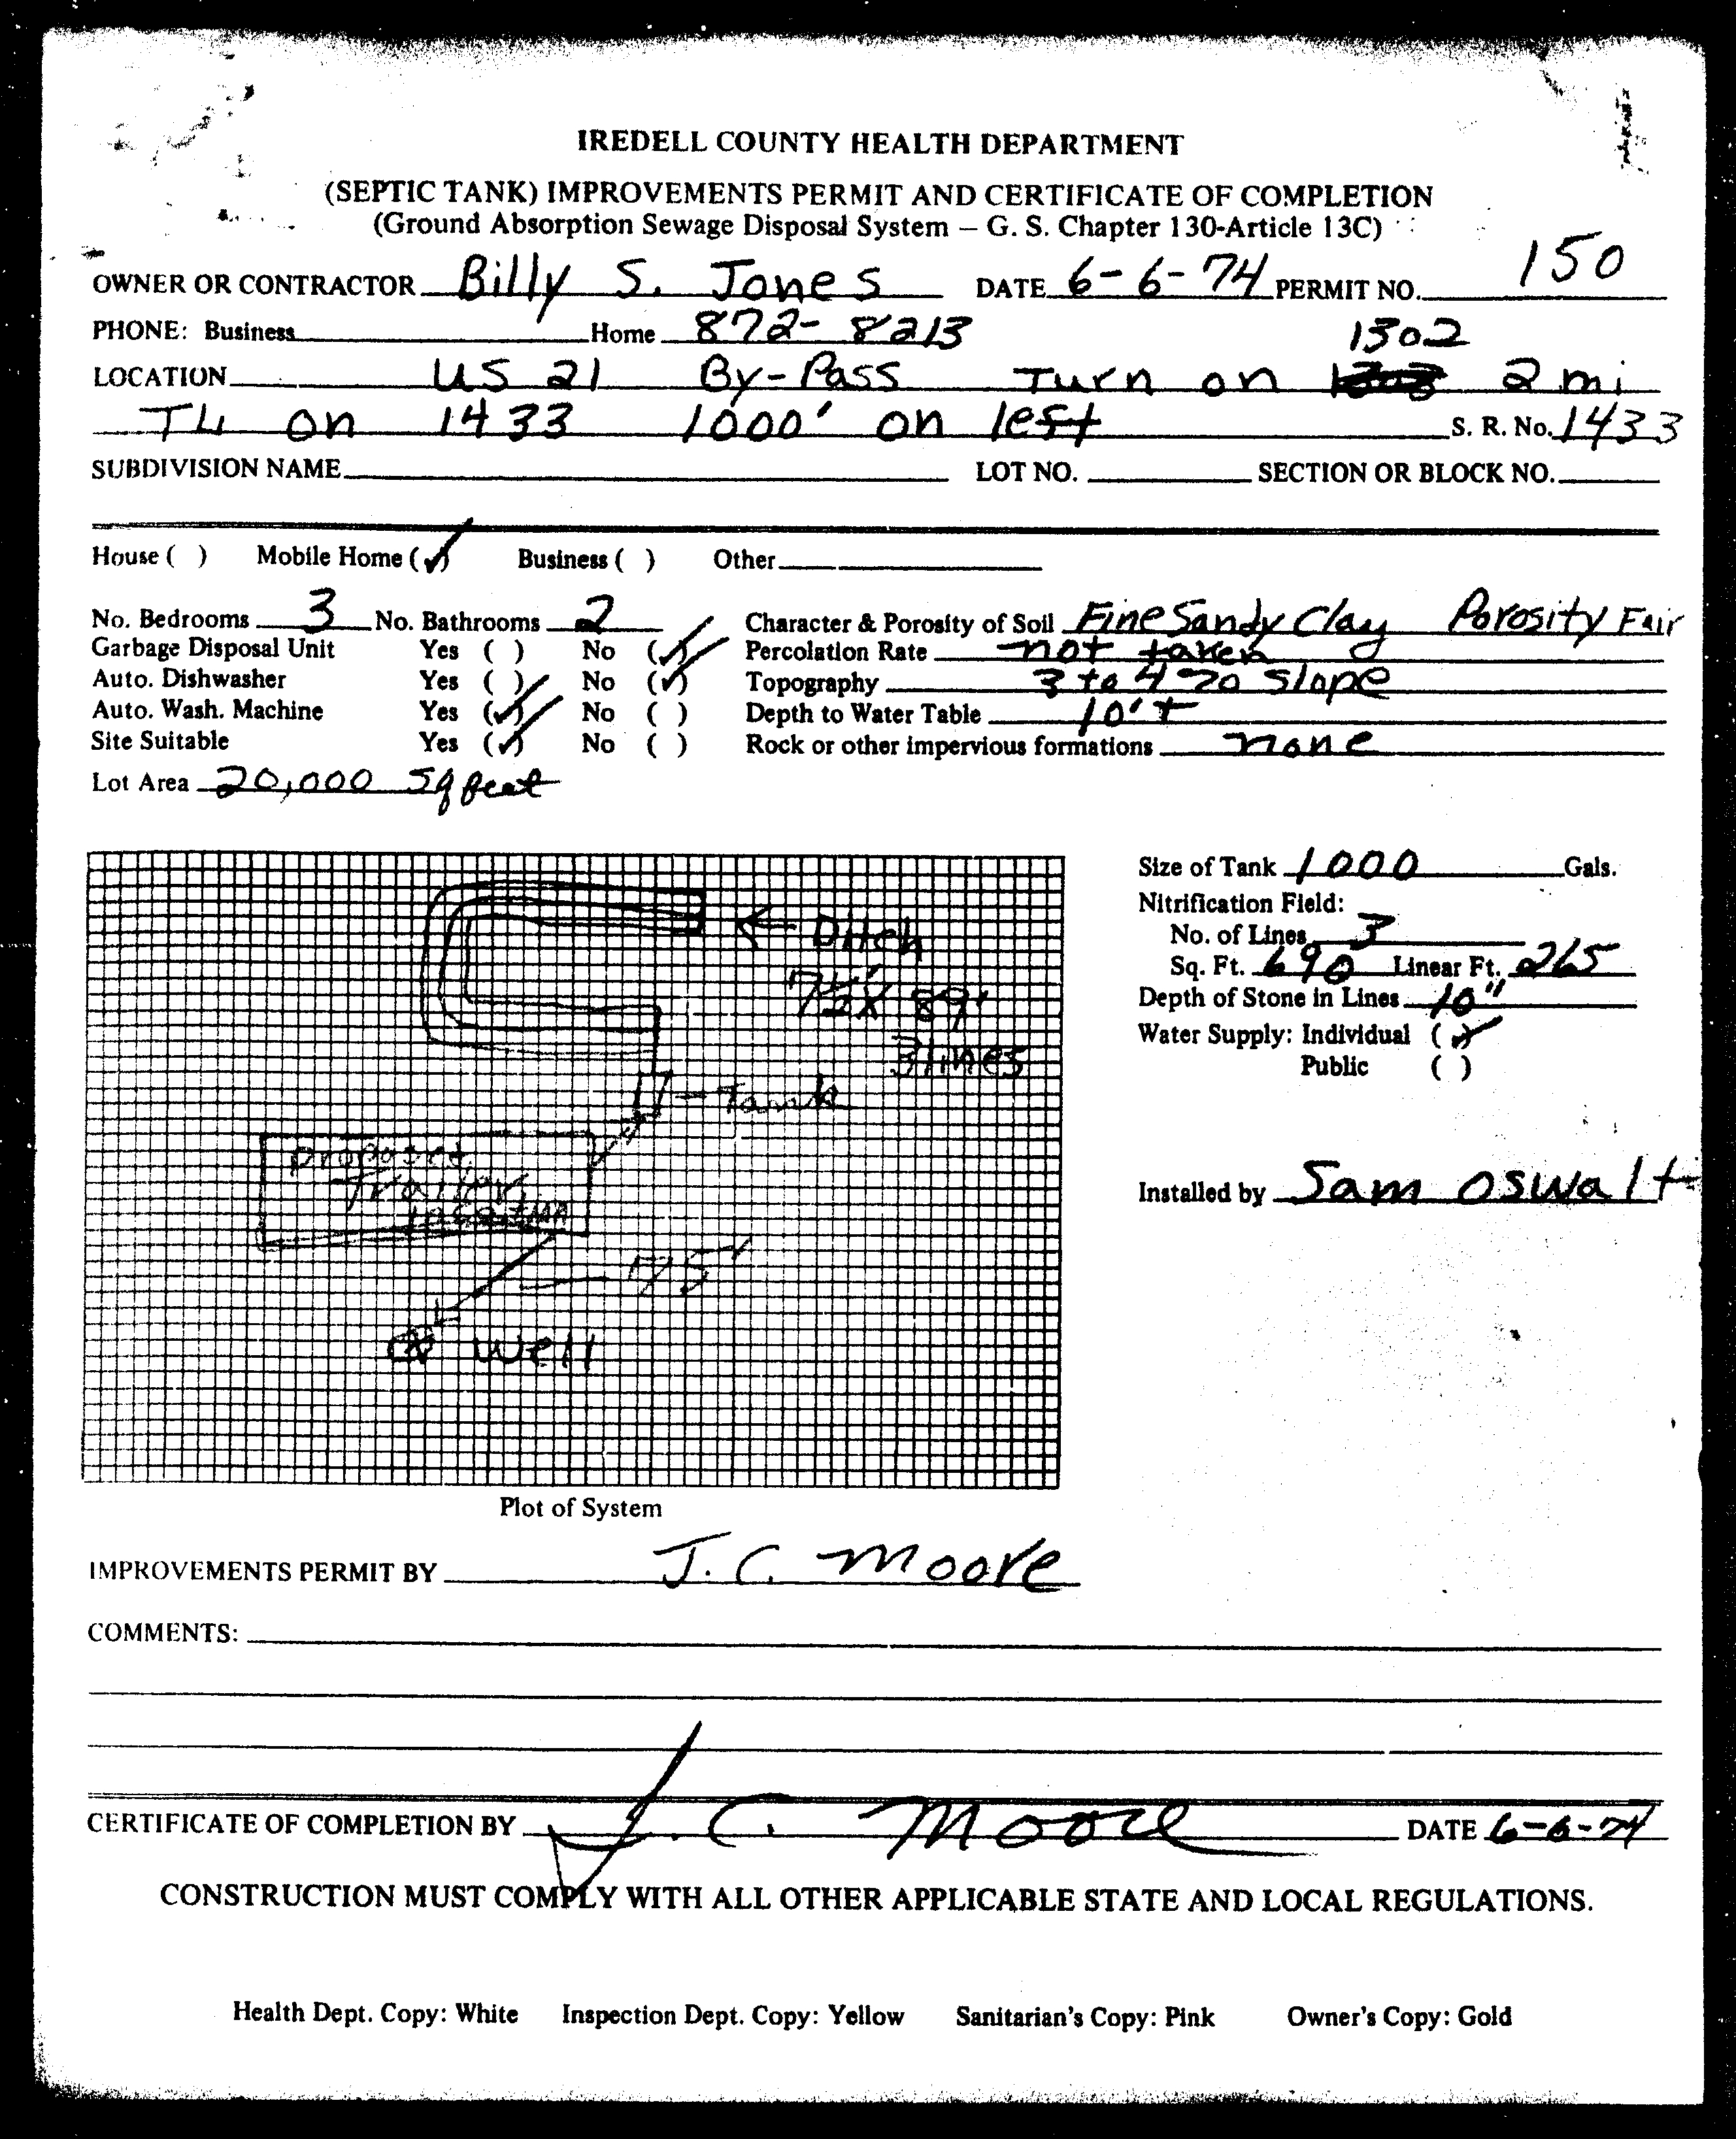 IREDELL COUNTY HEALTH DEPARTMENT
(SEPTIC TANK) IMPROVEMENTS PERMIT AND CERTIFICATE OF COMPLETION
(Ground Absorption Sewage Disposal System – G. S. Chapter 130-Article 13C)
OWNER OR CONTRACTOR Billy S. Jones DATE 6-6-74 PERMIT NO. 150
PHONE: Business Home 872-8213
1302
LOCATION US 21 By-Pass Turn on 2 mi
TL on 1433 1000' on left S. R. No. 1433
SUBDIVISION NAME LOT NO. SECTION OR BLOCK NO.
House ( ) Mobile Home (✓) Business ( ) Other
No. Bedrooms 3 No. Bathrooms 2 Character & Porosity of Soil Fine Sandy Clay Porosity Fair
Garbage Disposal Unit Yes ( ) No (✓) Percolation Rate not taken
Auto. Dishwasher Yes ( ) No (✓) Topography 3 to 4 % slope
Auto. Wash. Machine Yes (✓) No ( ) Depth to Water Table 10'+
Site Suitable Yes (✓) No ( ) Rock or other impervious formations none
Lot Area 20,000 Sq feet
Size of Tank 1000 Gals.
Nitrification Field:
No. of Lines 3
Sq. Ft. 690 Linear Ft. 265
Depth of Stone in Lines 10"
Water Supply: Individual (✓)
Public ( )
Installed by Sam Oswalt
Ditch
7½' X 89'
3 lines
Tank
Proposed
Trailer
Location
75'
Well
Plot of System
IMPROVEMENTS PERMIT BY J. C. Moore
COMMENTS:
CERTIFICATE OF COMPLETION BY J. C. Moore DATE 6-6-74
CONSTRUCTION MUST COMPLY WITH ALL OTHER APPLICABLE STATE AND LOCAL REGULATIONS.
Health Dept. Copy: White Inspection Dept. Copy: Yellow Sanitarian's Copy: Pink Owner's Copy: Gold